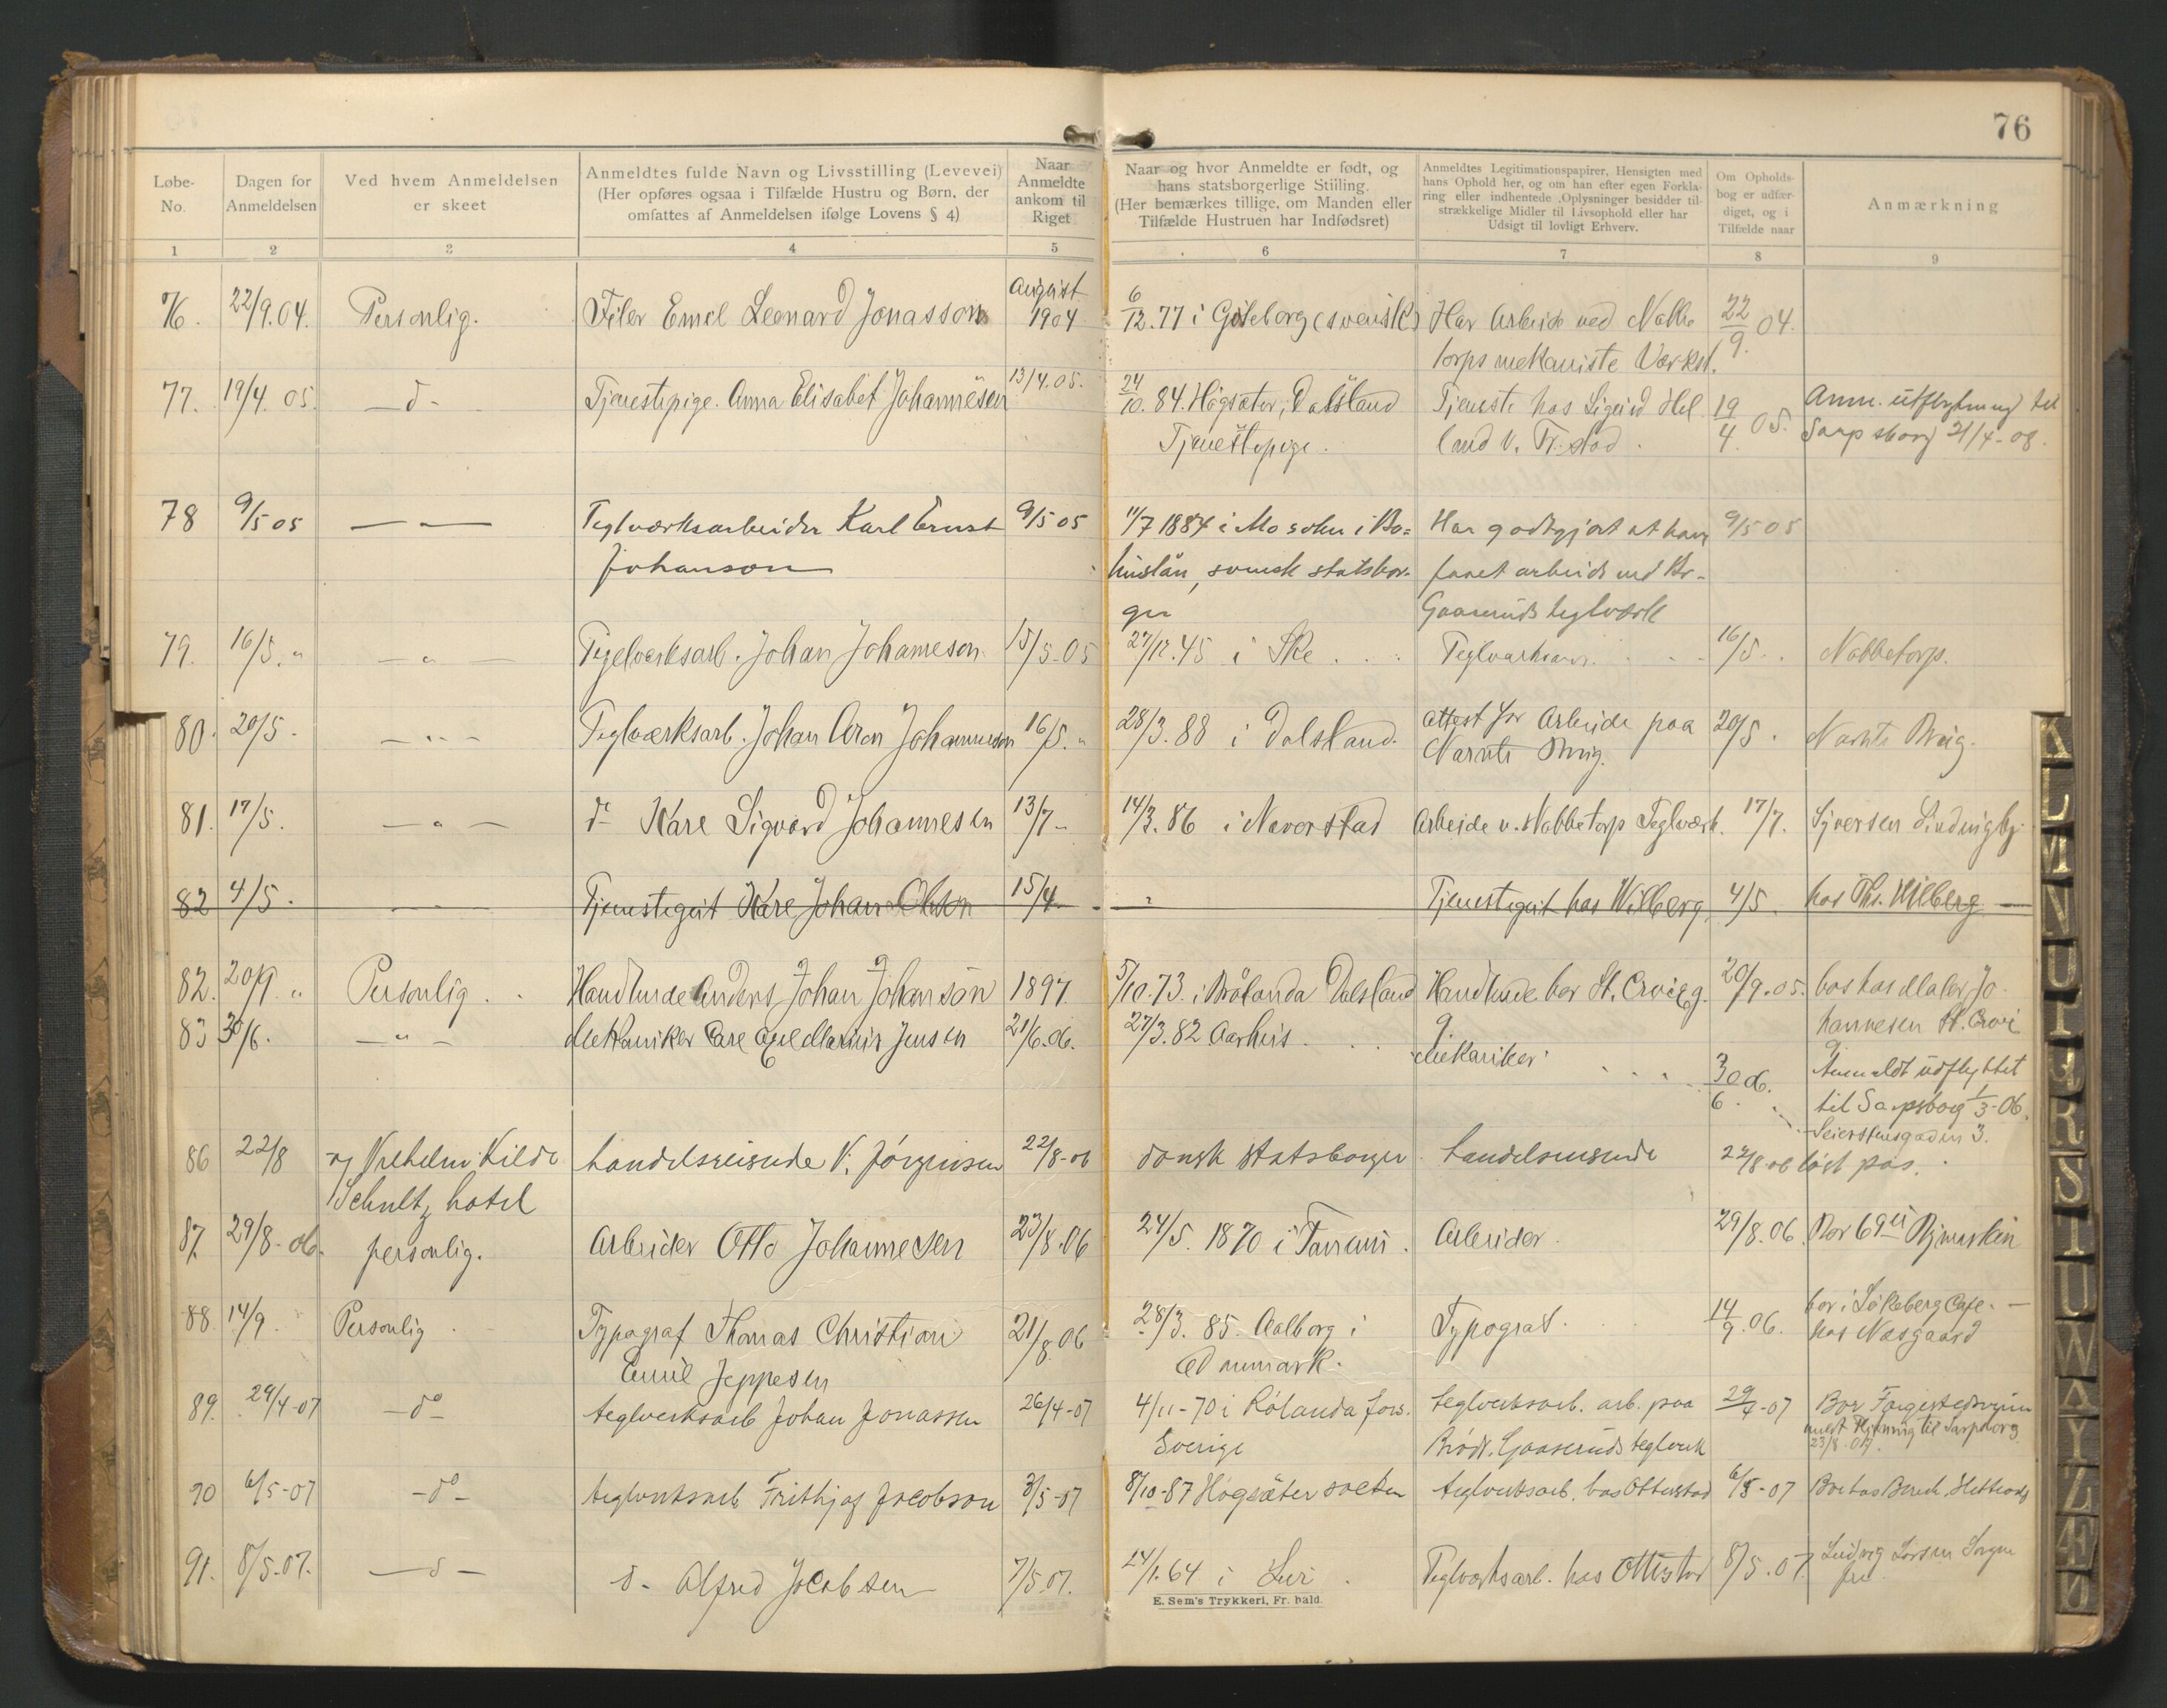 76
Løbe-
No.
Dagen for
Anmeldelsen
Ved hvem Anmeldelsen
er skeet
Anmeldtes fulde Navn og Livsstilling (Levevei)
(Her opføres ogsaa i Tilfælde Hustru og Børn, der
omfattes af Anmeldelsen ifølge Lovens § 4)
Naar
Anmeldte
ankom til
Riget
Naar og hvor Anmeldte er født, og
hans statsborgerlige Stilling.
(Her bemærkes tillige, om Manden eller
Tilfælde Hustruen har Indfødsret)
Anmeldtes Legitimationspapirer, Hensigten med
hans Ophold her, og om han efter egen Forkla-
ring eller indhentede Oplysninger besidder til-
strækkelige Midler til Livsophold eller har
Udsigt til lovligt Erhverv.
Om Opholds-
bog er udfær-
diget, og i
Tilfælde naar
Anmærkning
1 2 3 4 5 6 7 8 9
76. 22/9.04. Personlig. Filer Emil Leonard Jonasson August 1904 6/12.77 i Göteborg (svensk) Har Arbeide ved Nabbe 22/9 04.
torps mekaniste Værkst.
77. 19/4. 05. — d - Tjenestepige. Anna Elisabet Johannesen 13/4.05. 24/10. 84. Högsäter, Dalsland Tjeneste hos Sigurd Hel 19/4 05. Anm. utflytning til
Tjenestepige. land v. Fr.stad. Sarpsborg 21/4-08.
78 9/5 05 — — Teglværksarbeider Karl Ernst 9/5 05 11/7 1884 i Mo sokn i Bo= Har godtgjort at have 9/5 05
Johanson huslän, svensk statsbor- faaet arbeide ved Br-
ger Gaaseruds teglværk
79. 16/5. " — " — Tegelværksarb. Johan Johanneson. 15/5-05 27/12.45 i Ske Teglværksarb. 16/5. Nabbetorp.
80. 20/5. — " — Teglværksarb. Johan Aron Johannesson 16/5. " 28/3. 88 i Dalsland. Attest for Arbeide paa 20/5.
81. 17/5. — " — d- Kare Sigvard Johannesen 13/7- 14/3. 86 i Naverstad Arbeide v. Nabbetorp Teglværk. 17/7.
82 4/5. — — Tjenestegut Kare Johan Olsen 15/4 — " Tjenestegut hos Wilberg 4/5. hos Ths. Wilberg —
82. 20/9. " Personlig. Handlende Anders Johan Johanson 1897. 5/10.73. i Brålanda Dalsland Handlende bor St. Croix g. 20/9.05. bos hos
hannesen St. Croix
g.
83 30/6. — " — Mekaniker Care Axel Marius Jensen 21/6.06. 27/3.82 Aarhus. Mekaniker 30/6 06. Anmeldt udflyttet
til Sarpsborg 1/3-06.
Seierstensgaden 3.
86 22/8 v/ Vilhelm Kilde handelsreisende V. Jørgensen 22/8-06 dansk statsborger handelsreisende 22/8-06 løst pas.
Schultz hotel
87. 29/8-06. personlig. Arbeider Otto Johannesen 23/8.06 24/5. 1870 i Tanum. Arbeider. 29/8.06.
88. 14/9. Personlig Typograf Thomas Christian 21/8 06 28/3. 85. Aalborg i Typograf. 14/9.06. bor i Løkeberg Cafe. —
Emil Jeppesen Danmark. hos Næsgaard
89. 29/4-07 — do — teglverksarb Johan Jonassen 26/4-07 4/11-70 i Rölanda fors. teglverksarb. arb. paa 29/4-07 Bor
Sverige Brødr. Gaaseruds teglverk meldt flytning til Sarpsborg
23/8.07.
90 6/5-07 — do — teglverksarb Frithjof Jacobson 3/5-07 8/10-87 Högsäter socken teglverksarb. hos Otterstad 6/5-07
91. 8/5-07. — d — d- Alfred Jacobsen 7/5 07. 24/1.64 i Lur. Teglværksarb. hos Ottestad 8/5.07 Ludvig Larsen
E. Sem's Trykkeri, Fr. hald.
K
L
M
N
U
R
S
T
U
W
A
Y
Z
Æ
Ø